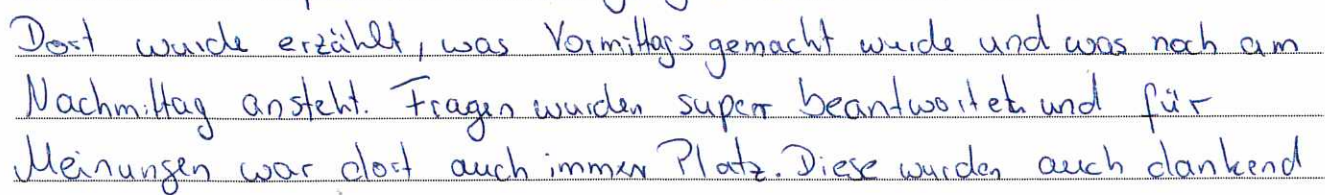 Dort wurde erzählt, was Vormittags gemacht wurde und was noch am
Nachmittag ansteht. Fragen wurden super beantwortet und für
Meinungen war dort auch immer Platz. Diese wurden auch dankend